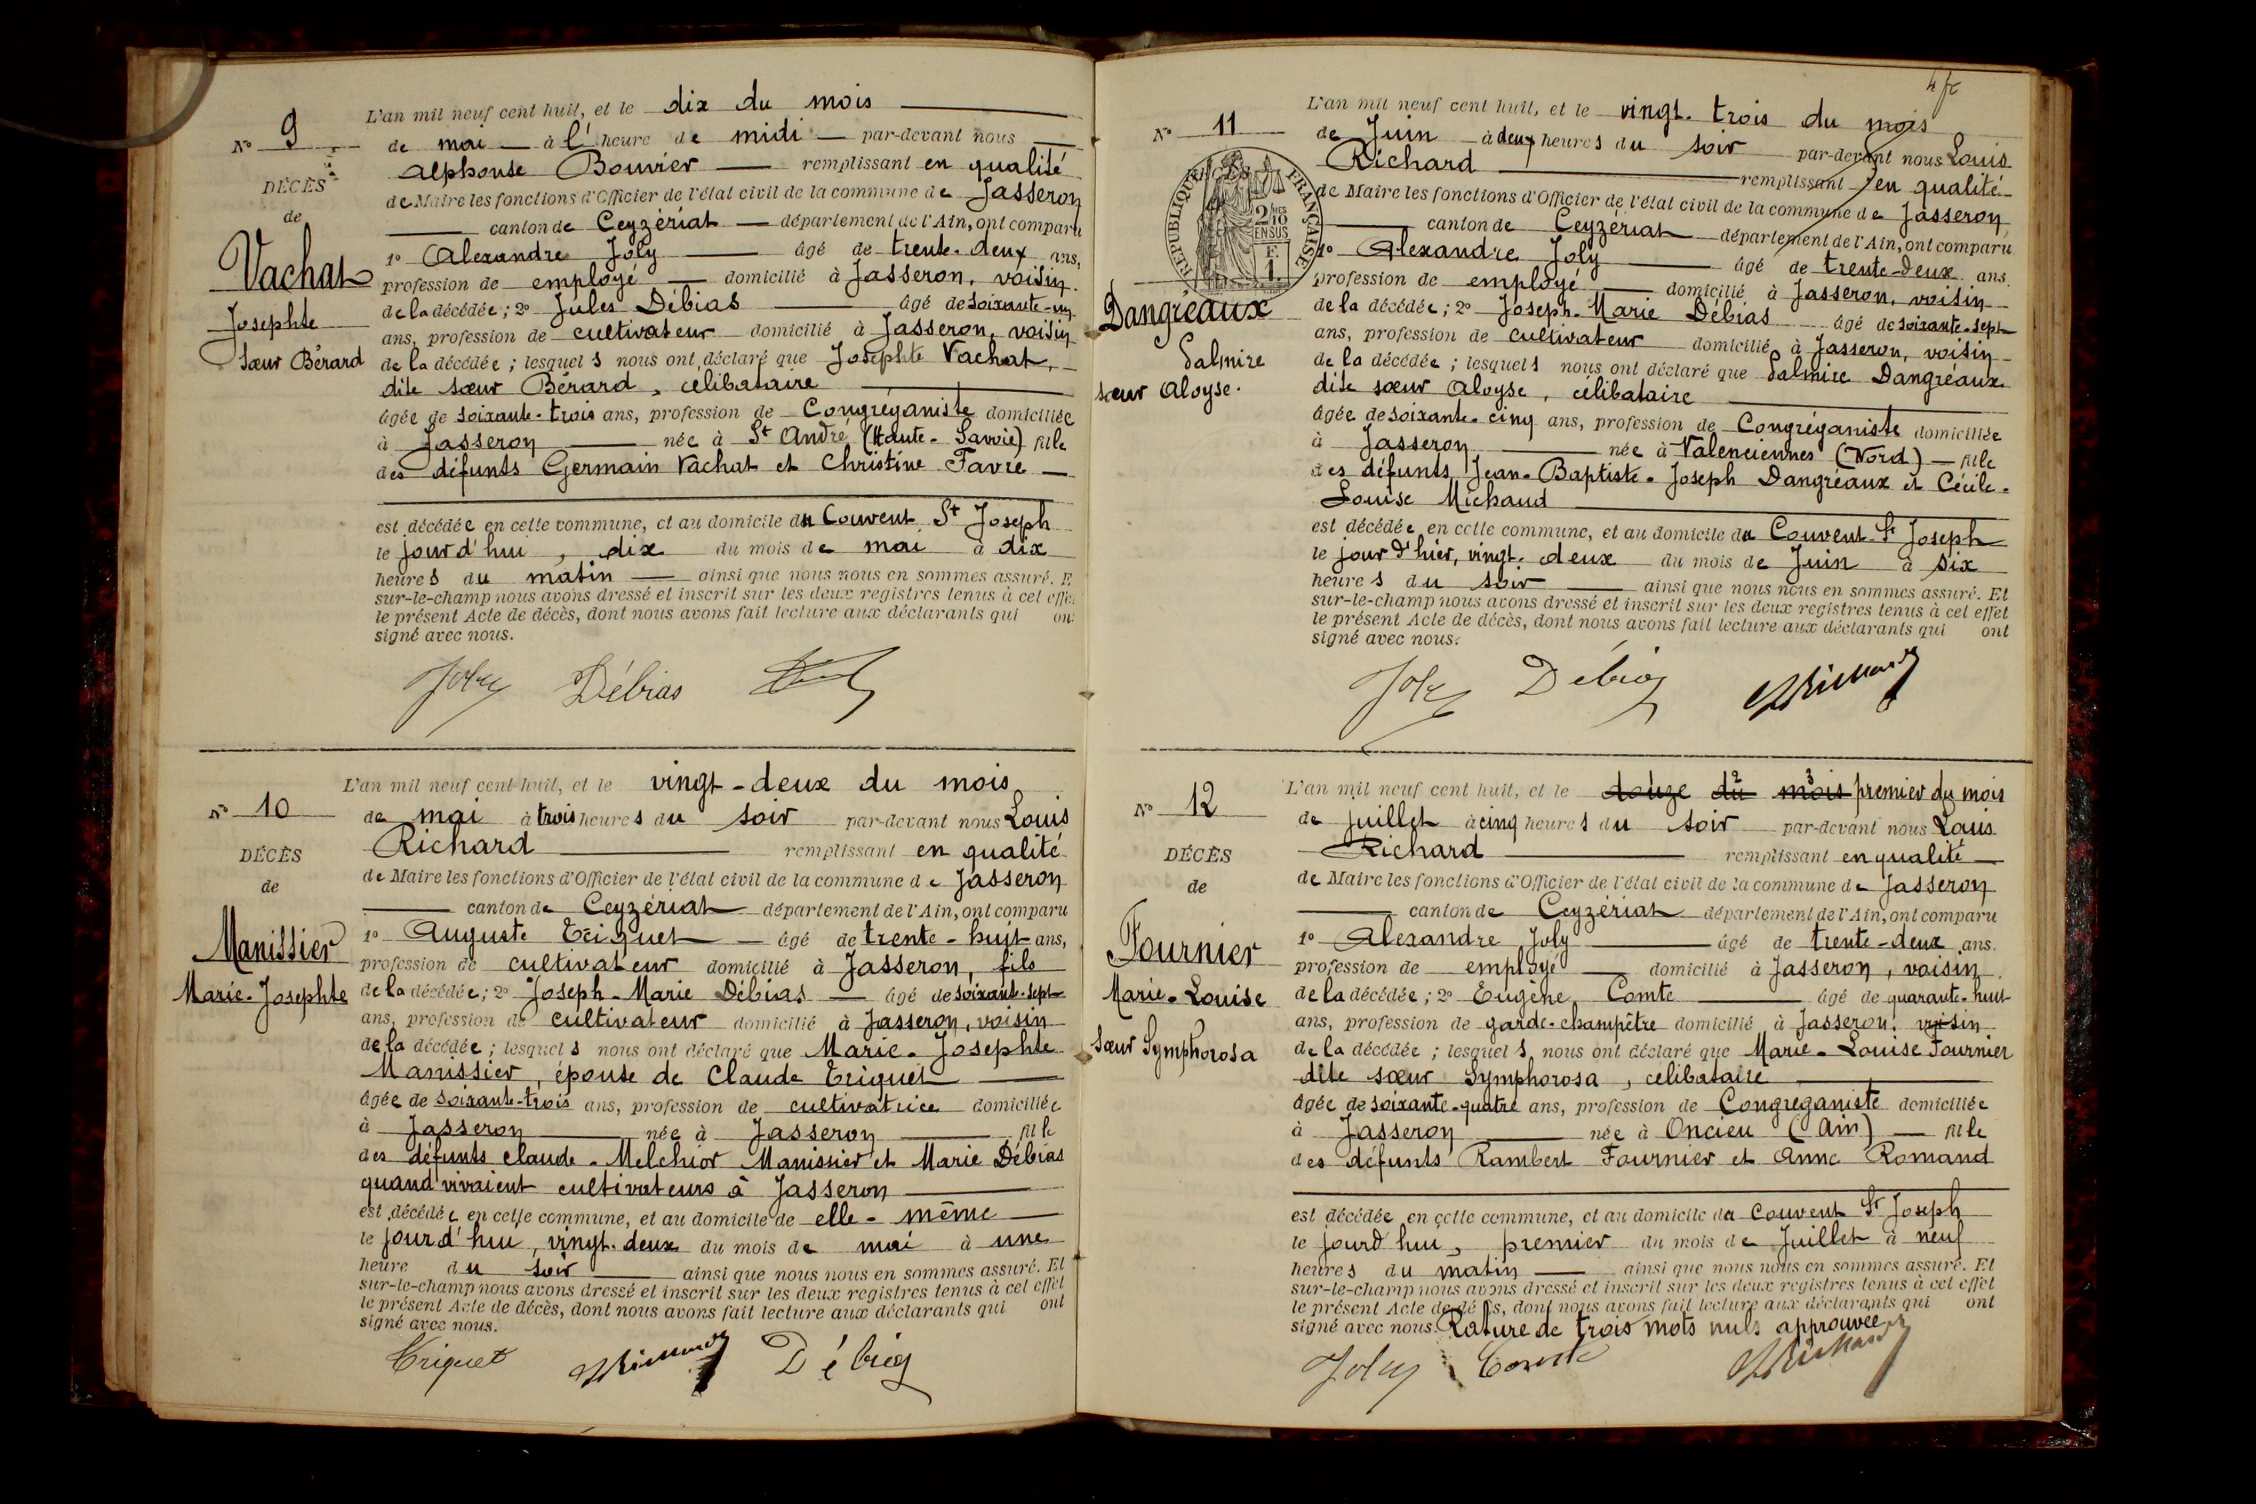 N° 9
DÉCÈS
de
Vachat
Josephte
Sœur Bérard
L'an mil neuf cent huit, et le dix du mois
de mai à l'heure de midi par-devant nous
Alphonse Bouvier remplissant en qualité
de Maire les fonctions d'Officier de l'état civil de la commune de Jasseron
canton de Ceyzériat département de l'Ain, ont comparu
1° Alexandre Joly âgé de trente-deux ans,
profession de employé domicilié à Jasseron, voisin
de la décédée; 2° Jules Débias âgé de soixante-un
ans, profession de cultivateur domicilié à Jasseron, voisin
de la décédée; lesquels nous ont déclaré que Josephte Vachat,
dite sœur Bérard, célibataire
âgée de soixante-trois ans, profession de Congréganiste domiciliée
à Jasseron née à St André (Haute-Savoie) fille
des défunts Germain Vachat et Christine Favre
est décédée en cette commune, et au domicile du Couvent St Joseph
le jourd'hui, dix du mois de mai à dix
heures du matin ainsi que nous nous en sommes assuré. E
sur-le-champ nous avons dressé et inscrit sur les deux registres tenus à cet effet
le présent Acte de décès, dont nous avons fait lecture aux déclarants qui on
signé avec nous.
Joly Débias
N° 10
DÉCÈS
de
Manissier
Marie-Josephte
L'an mil neuf cent huit, et le vingt-deux du mois
de mai à trois heures du soir par-devant nous Louis
Richard remplissant en qualité
de Maire les fonctions d'Officier de l'état civil de la commune de Jasseron
canton de Ceyzériat département de l'Ain, ont comparu
1° Auguste Criquet âgé de trente-huit ans,
profession de cultivateur domicilié à Jasseron, fils
de la décédée; 2° Joseph-Marie Débias âgé de soixante-sept
ans, profession de cultivateur domicilié à Jasseron, voisin
de la décédée; lesquels nous ont déclaré que Marie-Josephte
Manissier, épouse de Claude Criquet
âgée de soixante-trois ans, profession de cultivatrice domiciliée
à Jasseron née à Jasseron fille
des défunts Claude-Melchior Manissier et Marie Débias
quand vivaient cultivateurs à Jasseron
est décédée en cette commune, et au domicile de elle-même
le jourd'hui, vingt-deux du mois de mai à une
heure du soir ainsi que nous nous en sommes assuré. Et
sur-le-champ nous avons dressé et inscrit sur les deux registres tenus à cet effet
le présent Acte de décès, dont nous avons fait lecture aux déclarants qui ont
signé avec nous.
Criquet Richard Débias
4
N° 11
RÉPUBLIQUE FRANÇAISE
2/10 EN SUS
F. 1
Dangréaux
Palmire
sœur Aloyse.
L'an mil neuf cent huit, et le vingt-trois du mois
de Juin à deux heures du soir par-devant nous Louis
Richard remplissant en qualité
de Maire les fonctions d'Officier de l'état civil de la commune de Jasseron
canton de Ceyzériat département de l'Ain, ont comparu
1° Alexandre Joly âgé de trente-deux ans.
profession de employé domicilié à Jasseron, voisin
de la décédée; 2° Joseph-Marie Débias âgé de soixante-sept
ans, profession de cultivateur domicilié à Jasseron, voisin
de la décédée; lesquels nous ont déclaré que Palmire Dangréaux
dite sœur Aloyse, célibataire
âgée de soixante-cinq ans, profession de Congréganiste domiciliée
à Jasseron née à Valenciennes (Nord) fille
des défunts Jean-Baptiste-Joseph Dangréaux et Cécile-
Louise Michaud
est décédée en cette commune, et au domicile du Couvent St Joseph
le jour d'hier, vingt-deux du mois de Juin à six
heures du soir ainsi que nous nous en sommes assuré. Et
sur-le-champ nous avons dressé et inscrit sur les deux registres tenus à cet effet
le présent Acte de décès, dont nous avons fait lecture aux déclarants qui ont
signé avec nous.
Joly Débias Richard
N° 12
DÉCÈS
de
Fournier
Marie-Louise
Sœur Symphorosa
L'an mil neuf cent huit, et le douze du mois premier du mois
de juillet à cinq heures du soir par-devant nous Louis
Richard remplissant en qualité
de Maire les fonctions d'Officier de l'état civil de la commune de Jasseron
canton de Ceyzériat département de l'Ain, ont comparu
1° Alexandre Joly âgé de trente-deux ans.
profession de employé domicilié à Jasseron, voisin
de la décédée; 2° Eugène Comte âgé de quarante-huit
ans, profession de garde-champêtre domicilié à Jasseron, voisin
de la décédée; lesquels nous ont déclaré que Marie-Louise Fournier
dite sœur Symphorosa, célibataire
âgée de soixante-quatre ans, profession de Congréganiste domiciliée
à Jasseron née à Oncieu (Ain) fille
des défunts Rambert Fournier et Anne Romand
est décédée en cette commune, et au domicile du Couvent St Joseph
le jourd'hui, premier du mois de Juillet à neuf
heures du matin ainsi que nous nous en sommes assuré. Et
sur-le-champ nous avons dressé et inscrit sur les deux registres tenus à cet effet
le présent Acte de décès, dont nous avons fait lecture aux déclarants qui ont
signé avec nous. Rature de trois mots nuls approuvée
Joly Comte Richard